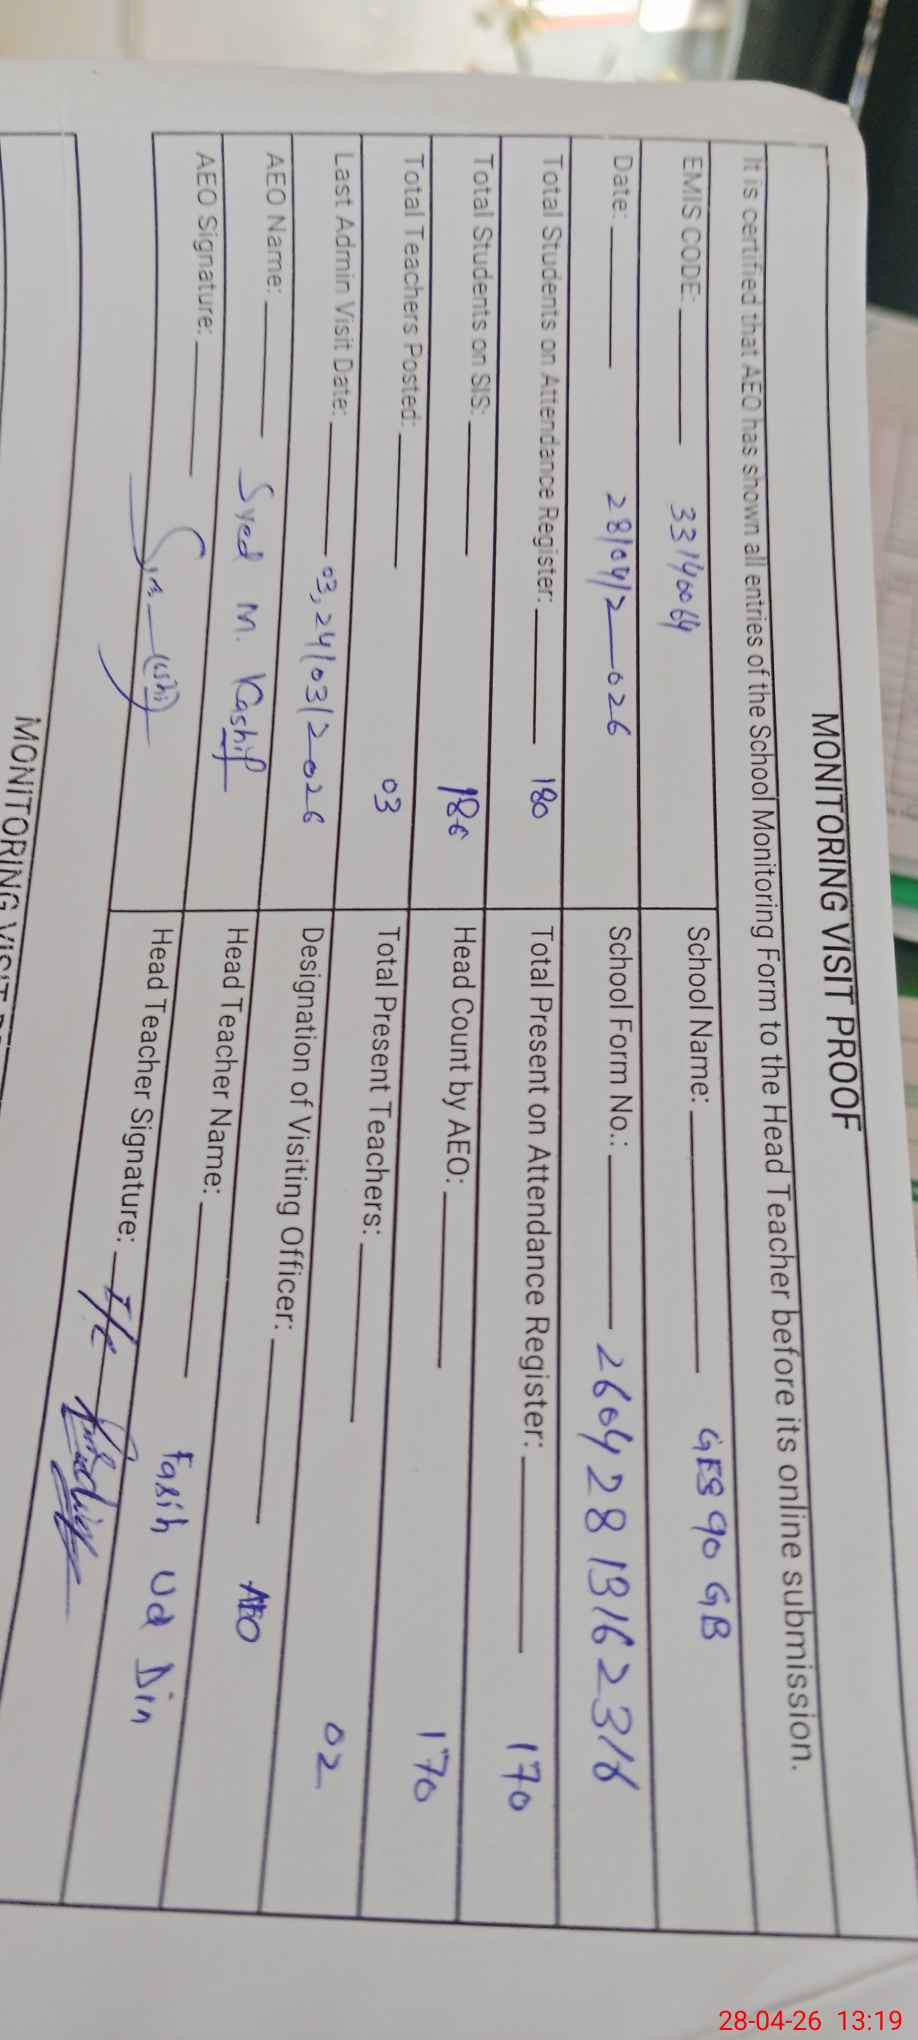 MONITORING VISIT PROOF
It is certified that AEO has shown all entries of the School Monitoring Form to the Head Teacher before its online submission.
EMIS CODE: 33140064 School Name: GES 90 GB
Date: 28/04/2026 School Form No.:
Total Students on Attendance Register: 180 Total Present on Attendance Register: 170
Total Students on SIS: Head Count by AEO: 170
Total Teachers Posted: 03 Total Present Teachers: 02
Last Admin Visit Date: 03, 24/03/2026 Designation of Visiting Officer: AEO
AEO Name: Syed M. Kashif Head Teacher Name: Fasih Ud Din
AEO Signature: Head Teacher Signature: I/C
MONITORING VISIT
28-04-26 13:19